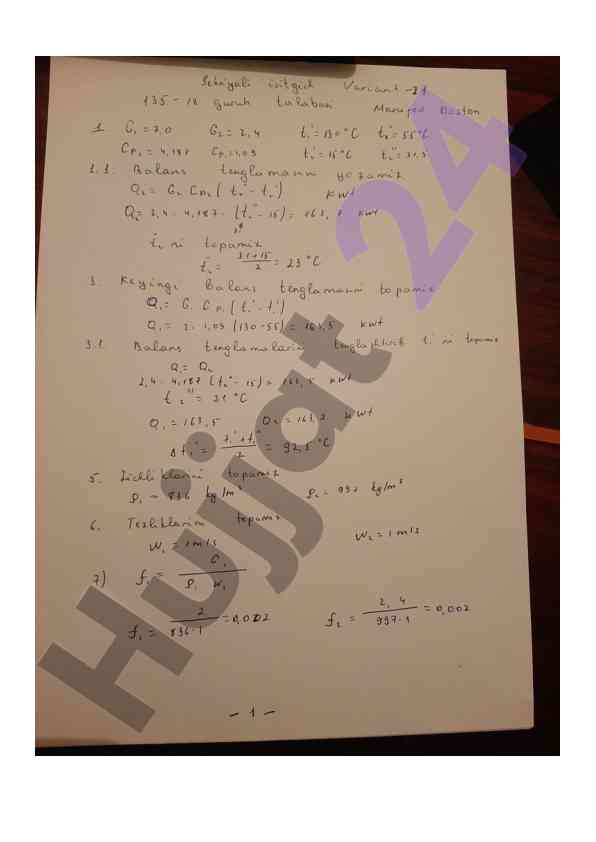 Sekciyali isitgich Variant - 21
135-18 guruh talabasi
1. G₁ = 2,0 G₂ = 2,4 t₁' = 130°C t₁'' = 55°C
Cp₂ = 4,187 Cp₁ = 1,09 t₂' = 15°C t₂'' = 31,3
2.1. Balans tenglamasini yozamiz
Q₂ = G₂ Cp₂ (t₂'' - t₂') kWt
Q₂ = 2,4 · 4,187 · (t₂'' - 15) = 163, kWt
t₂ ni topamiz
t₂ = (31+15)/2 = 23 °C
3. Keyingi balans tenglamasini topamiz
Q₁ = G₁ Cp₁ (t₁' - t₁'')
Q₁ = 2 · 1,09 (130 - 55) = 163,5 kWt
3.1 Balans tenglamalarini tenglashtirib ni topamiz
Q₁ = Q₂
2,4 · 4,187 (t₂'' - 15) = 163,5 kWt
t₂'' = 31 °C
Q₁ = 163,5 Q₂ = 163,2 kWt
Δt₁ = (t₁' + t₁'')/2 = 92,5 °C
5. Zichliklarni topamiz
ρ₁ = 896 kg/m³ ρ₂ = 997 kg/m³
6. Tezliklarini topamiz
W₁ = 1 m/s W₂ = 1 m/s
7) f₁ = G₁/(ρ₁ W₁)
f₁ = 2/(896·1) = 0,002 f₂ = 2,4/(997·1) = 0,002
- 1 -
Hujjat 24